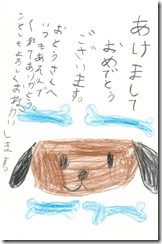 あけまして
おめでとう
ございます。
おとうさんへ
いつもあそんで
くれてありがとう。
ことしもよろしくおねがいします。